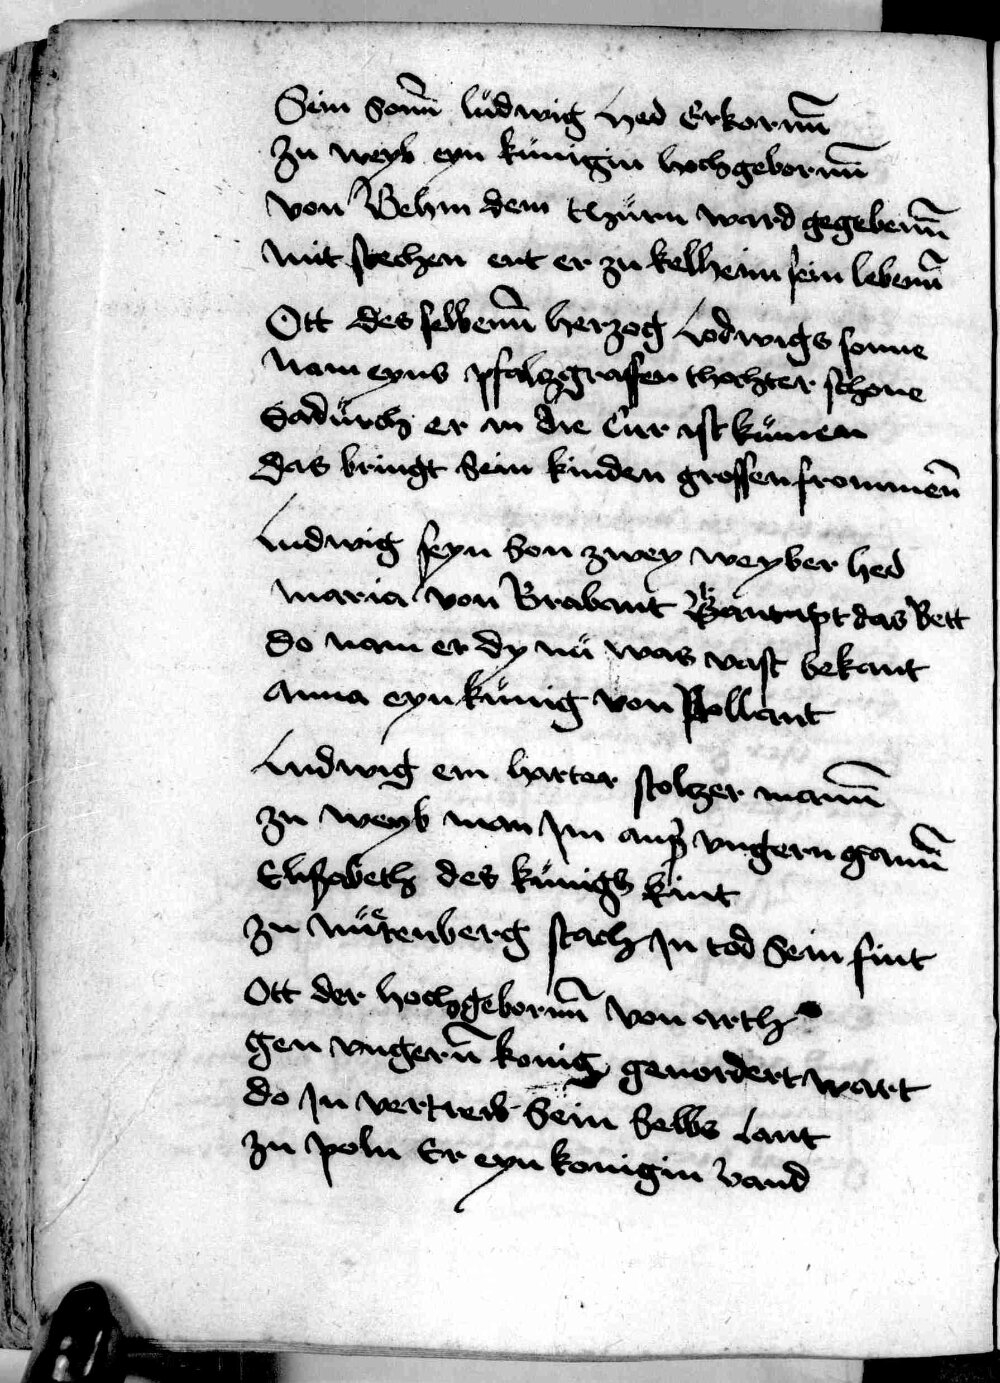 Sein Sonn ludwig hed Erkornn
Zu weyb eyn künigin hochgebornn
von Behm dem thürn ward gegebenn
mit stechen ent er zu kelheim sein lebenn
Ott des selbenn herzog Lodwigs sonne
Nam eyns pfalczgraffen thochter schone
Dadürch er in die Cur ist kümen
das bringt Sein kinden grossen frommen
Ludwig seyn Son zwey weyber hed
maria von Brabant das Bett
do nam er dy nü was vast bekant
Anna eyn künig von Pollant
Ludwig ein harter stolzer mann
zu weyb man Im auß vngern gann
Elisabeth des künigs kint
zu nürenberg stach In tod Sein fint
Ott der hochgebornn von arth
gen vngern konig geuordert wart
do In vertreib Sein Selbs Lant
zu poln Er eyn konigin vand